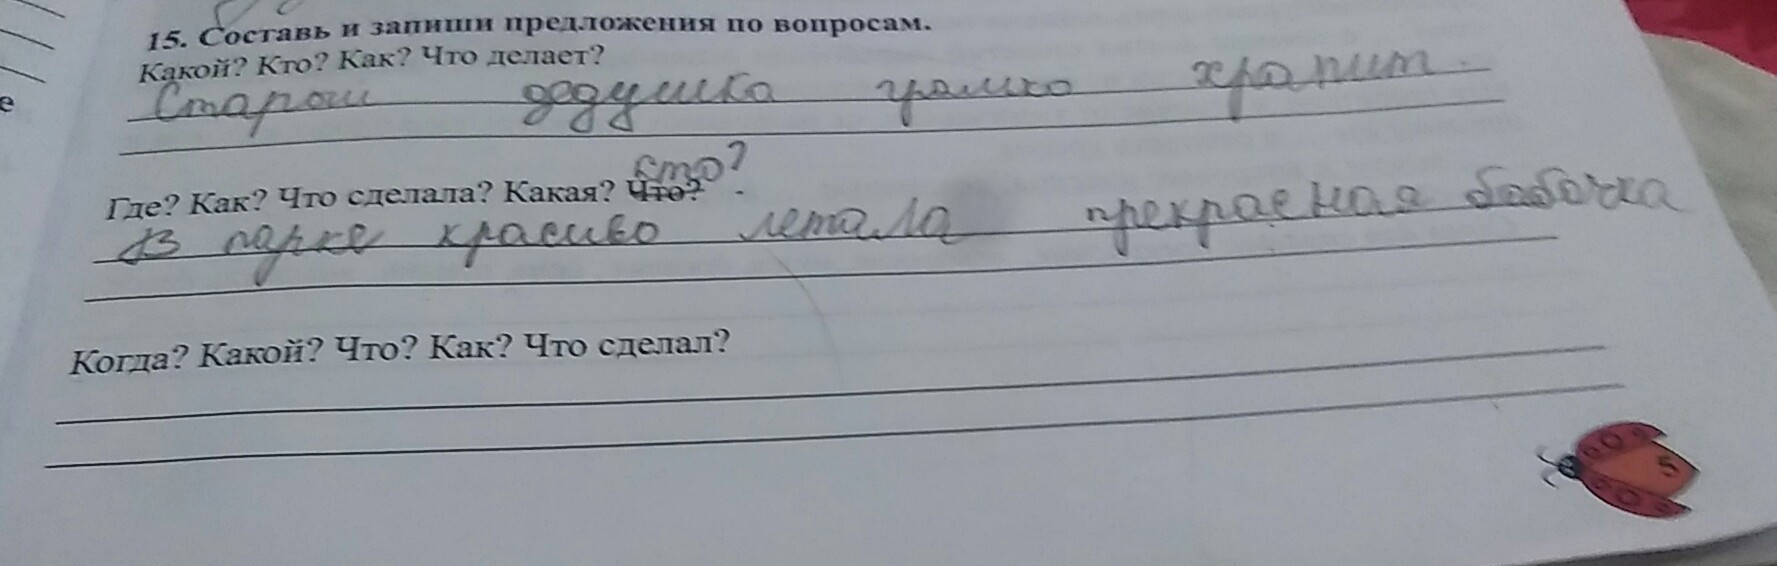 15. Составь и запиши предложения по вопросам.
Какой? Кто? Как? Что делает?
Старый дедушка громко храпит.
Кто?
Где? Как? Что сделала? Какая? Что?
В парке красиво летала прекрасная бабочка
Когда? Какой? Что? Как? Что сделал?
е
5